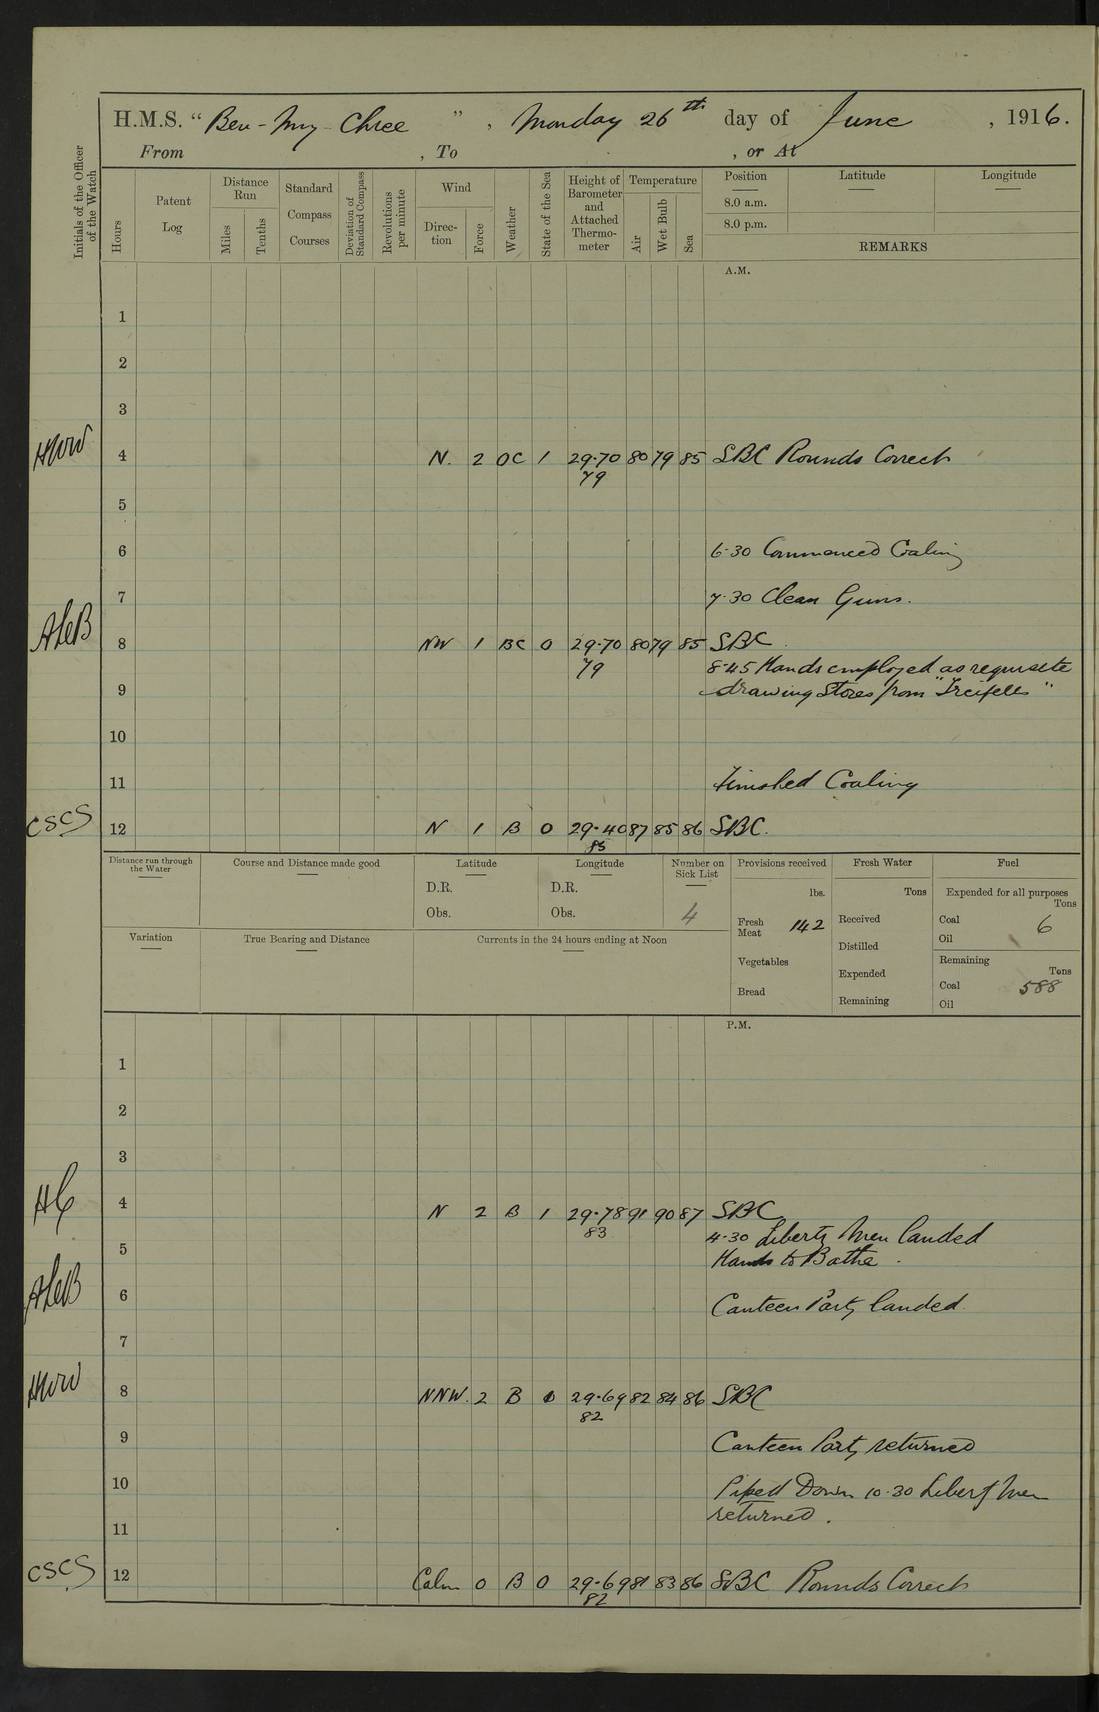 H.M.S. "Ben-My-Chree", Monday 26th day of June, 1916.
From , To , or At
Initials of the Officer of the Watch
Hours
Patent Log
Distance Run
Miles
Tenths
Standard Compass Courses
Deviation of Standard Compass
Revolutions per minute
Wind
Direc-tion
Force
Weather
State of the Sea
Height of Barometer and Attached Thermo-meter
Temperature
Air
Wet Bulb
Sea
Position Latitude Longitude
8.0 a.m.
8.0 p.m.
REMARKS
A.M.
1
2
3
HWW 4 N. 2 OC 1 29.70 80 79 85 SBC Rounds Correct
79
5
6 6.30 Commenced Coaling
7 7.30 Clean Guns.
ALeB 8 NW 1 BC 0 29.70 80 79 85 SBC
79 8.45 Hands employed as requisite
9 drawing Stores from
10
11 Finished Coaling
CSCS 12 N 1 B 0 29.40 87 85 86 SBC.
85
Distance run through the Water
Course and Distance made good
Latitude
D.R.
Obs.
Longitude
D.R.
Obs.
Number on Sick List
4
Provisions received
lbs.
Fresh Meat 142
Vegetables
Bread
Fresh Water
Tons
Received
Distilled
Expended
Remaining
Fuel
Expended for all purposes
Tons
Coal 6
Oil
Remaining
Tons
Coal 588
Oil
Variation
True Bearing and Distance
Currents in the 24 hours ending at Noon
P.M.
1
2
3
HC 4 N 2 B 1 29.78 91 90 87 SBC
83 4.30 Liberty Men landed
5 Hands to Bathe.
ALeB 6 Canteen Party landed
7
HWW 8 NNW. 2 B 0 29.69 82 84 86 SBC
82
9 Canteen Party returned
10 Piped Down 10.30 Liberty Men
returned.
11
CSCS 12 Calm 0 B 0 29.69 81 83 86 SBC Rounds Correct
82